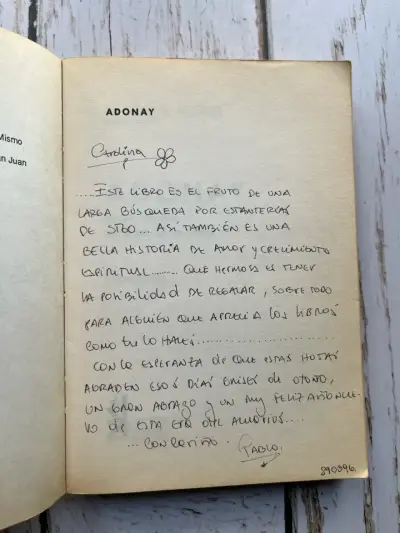 Mismo
n Juan
ADONAY
Carolina
.....ESTE LIBRO ES EL FRUTO DE UNA
LARGA BÚSQUEDA POR ESTANTERÍAS
DE STGO... ASÍ TAMBIÉN ES UNA
BELLA HISTORIA DE AMOR Y CRECIMIENTO
ESPIRITUAL......... QUE HERMOSO EL TENER
LA POSIBILIDAD DE REGALAR, SOBRE TODO
PARA ALGUIEN QUE APRECIA LOS LIBROS
COMO TU LO HACES......................
CON LA ESPERANZA DE QUE ESTAS HOJAS
AGRADEN ESOS DÍAS GRISES DE OTOÑO,
UN GRAN ABRAZO Y UN MUY FELIZ AÑO NUE-
VO DE ESTA ERA DEL ACUARIUS....
... CON CARIÑO. PABLO.
290396.